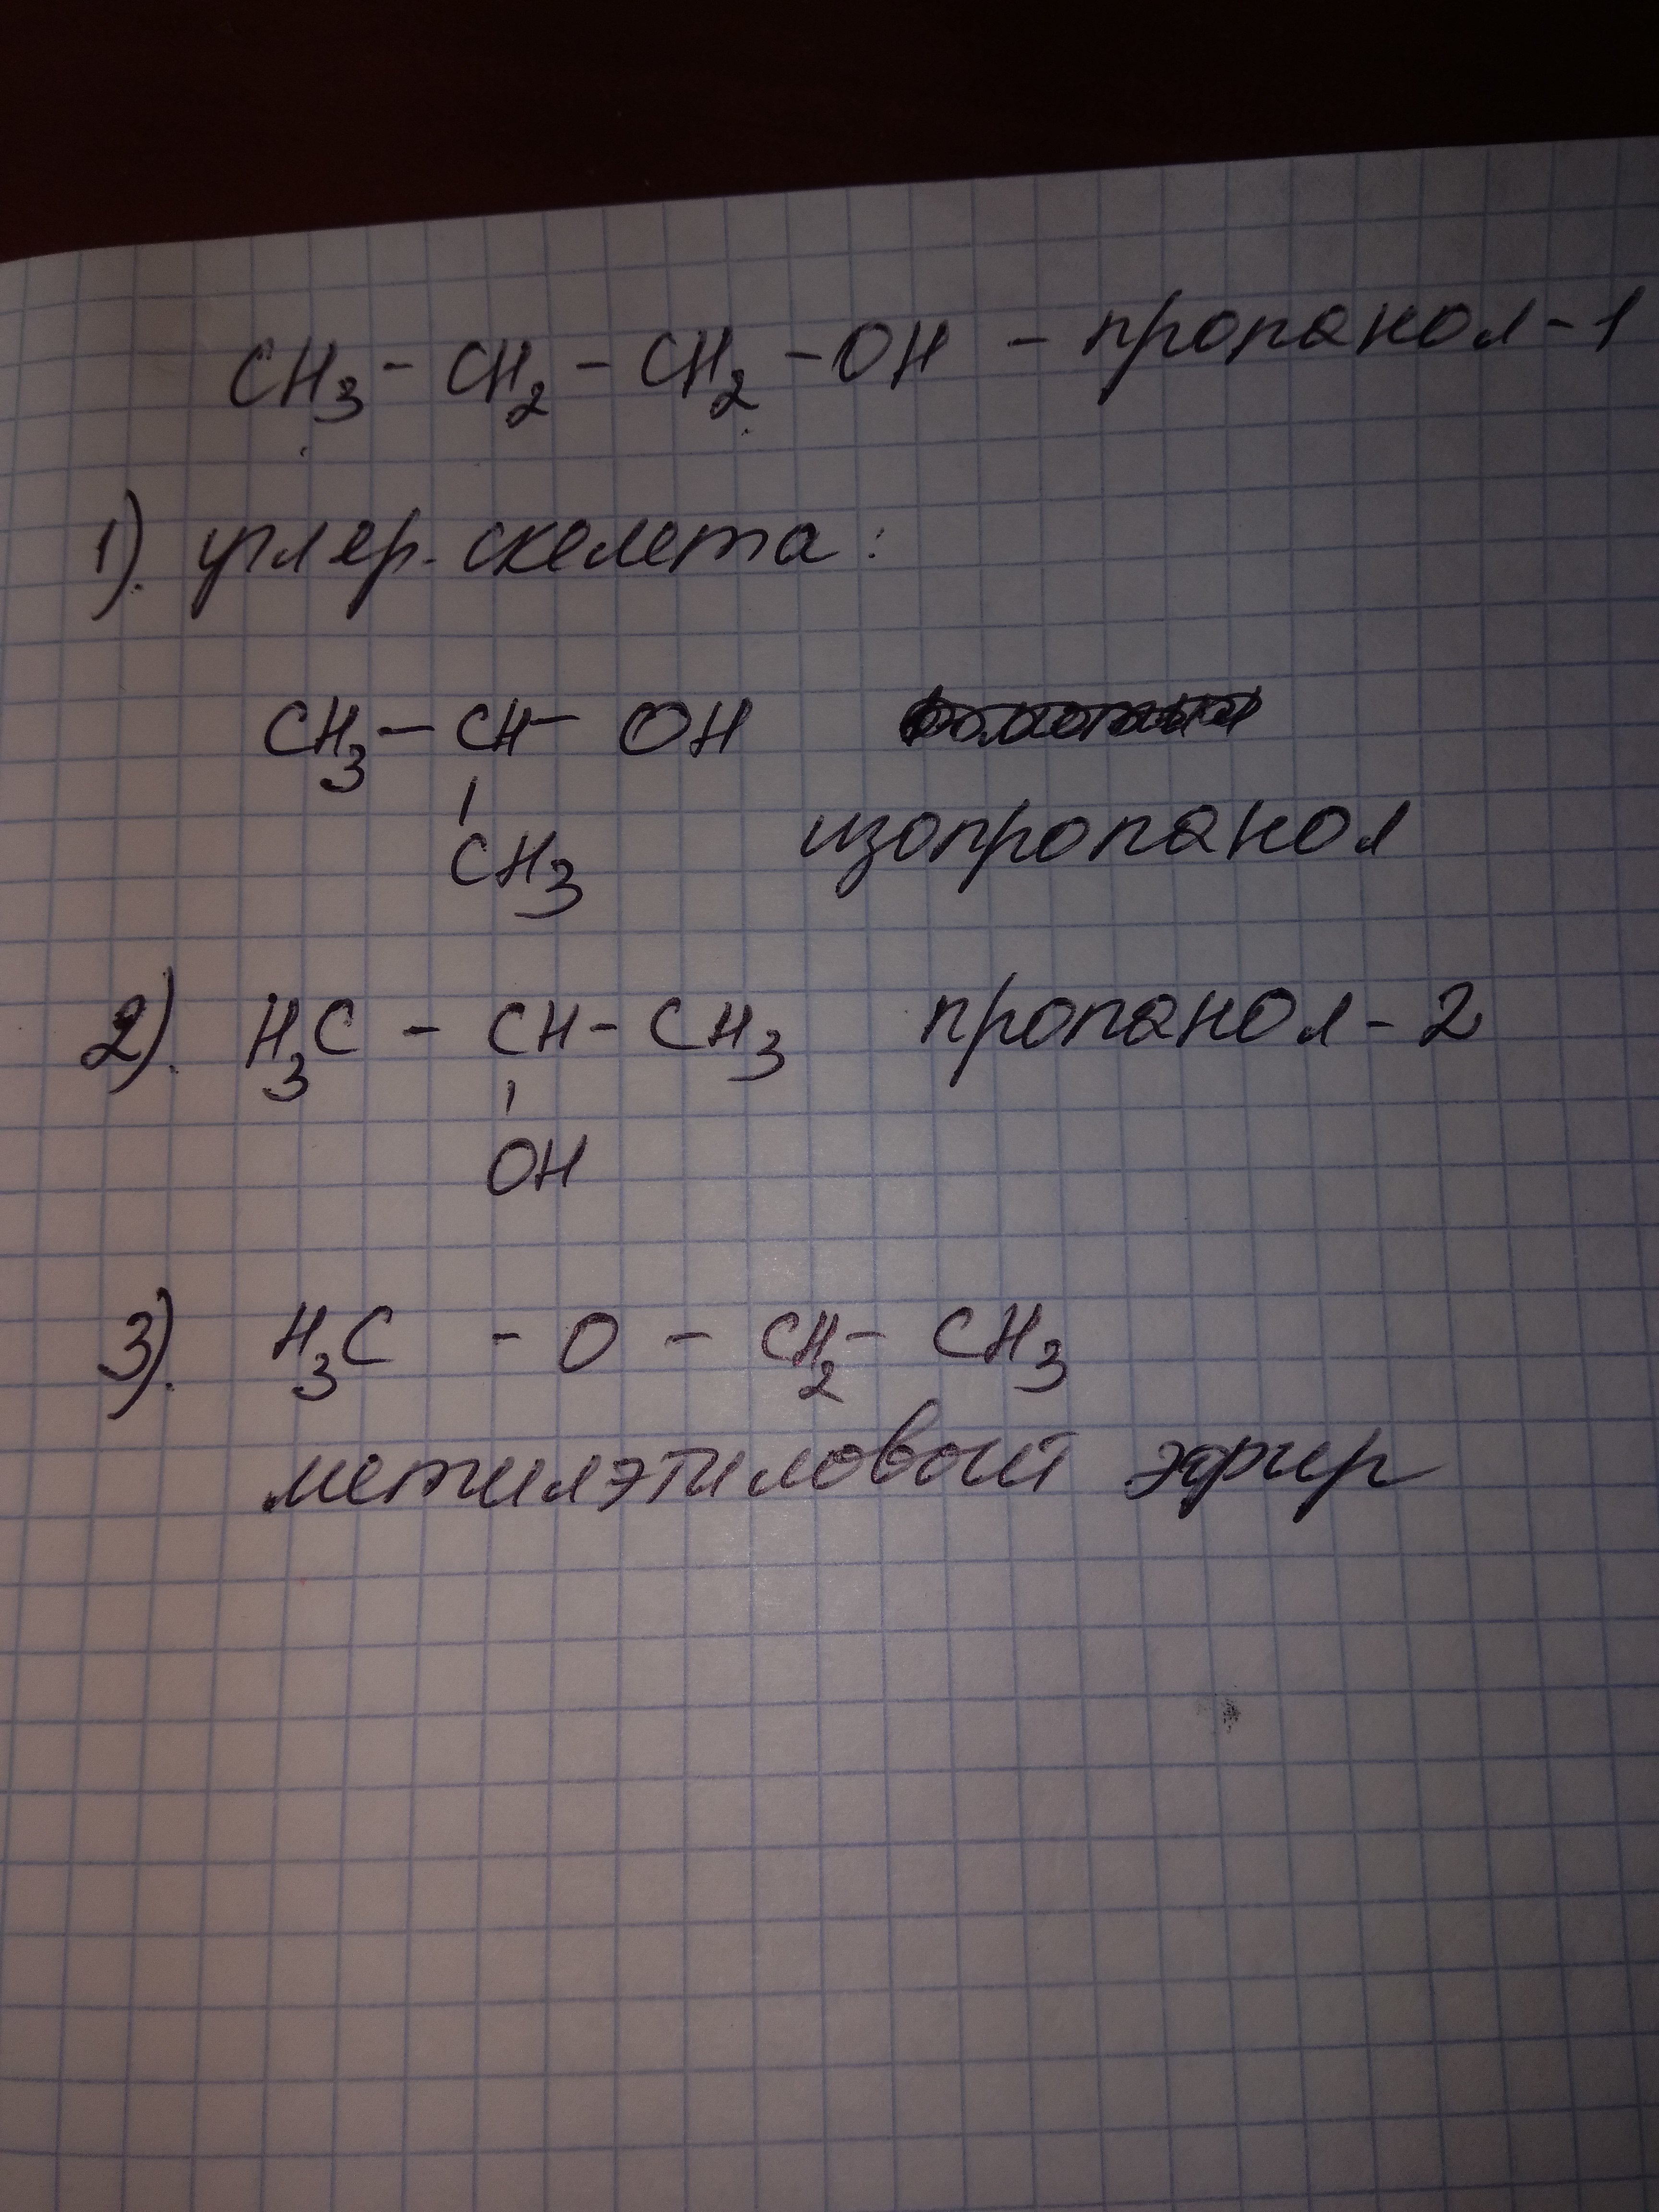 CH3 - CH2 - CH2 - OH - пропанол-1
1). углер. скелета:
CH3 - CH - OH
CH3 изопропанол
2). H3C - CH - CH3 пропанол-2
OH
3). H3C - O - CH2 - CH3
метилэтиловый эфир